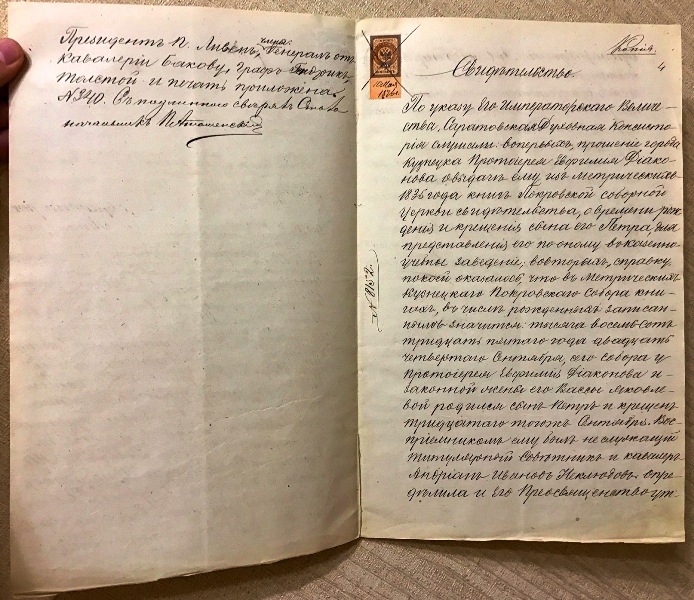 Президентъ П. Ливенъ,
члена: Генералъ отъ
Кавалеріи Бакову, Графъ
Толстой и печать приложена
№ 340. Съ подлиннаго
начальникъ
Копія.
4
Свидѣтельство.
По указу Его Императорскаго Величе-
ства, Саратовская Духовная Консисто-
рія слушали: вопервыхъ, прошеніе города
Кузнецка Протоіерея Евфимія Діако-
нова о выдачѣ ему изъ метрическихъ
1835 года книгъ Покровской соборной
церкви свидѣтельства, о времени рож-
денія и крещенія сына его Петра, для
представленія его по оному въ казенно
учебное заведеніе, вовторыхъ, справку,
по коей оказалось, что въ метрическихъ
Кузнецкаго Покровскаго Собора кни-
гахъ, въ числѣ рожденныхъ записан-
нымъ значится: тысяча восемьсотъ
тридцать пятаго года двадцать
четвертаго Сентября, сего собора у
протоіерея Евфимія Діаконова и
законной жены его Вассы Яковле-
вой родился сынъ Петръ и крещенъ
тридцатаго тогожъ Сентября. Вос-
пріемникомъ ему былъ не служащій
титулярный Совѣтникъ и кавалеръ
Андріанъ Ивановъ Неклюдовъ. Опре-
дѣлила и Его Преосвященство ут-